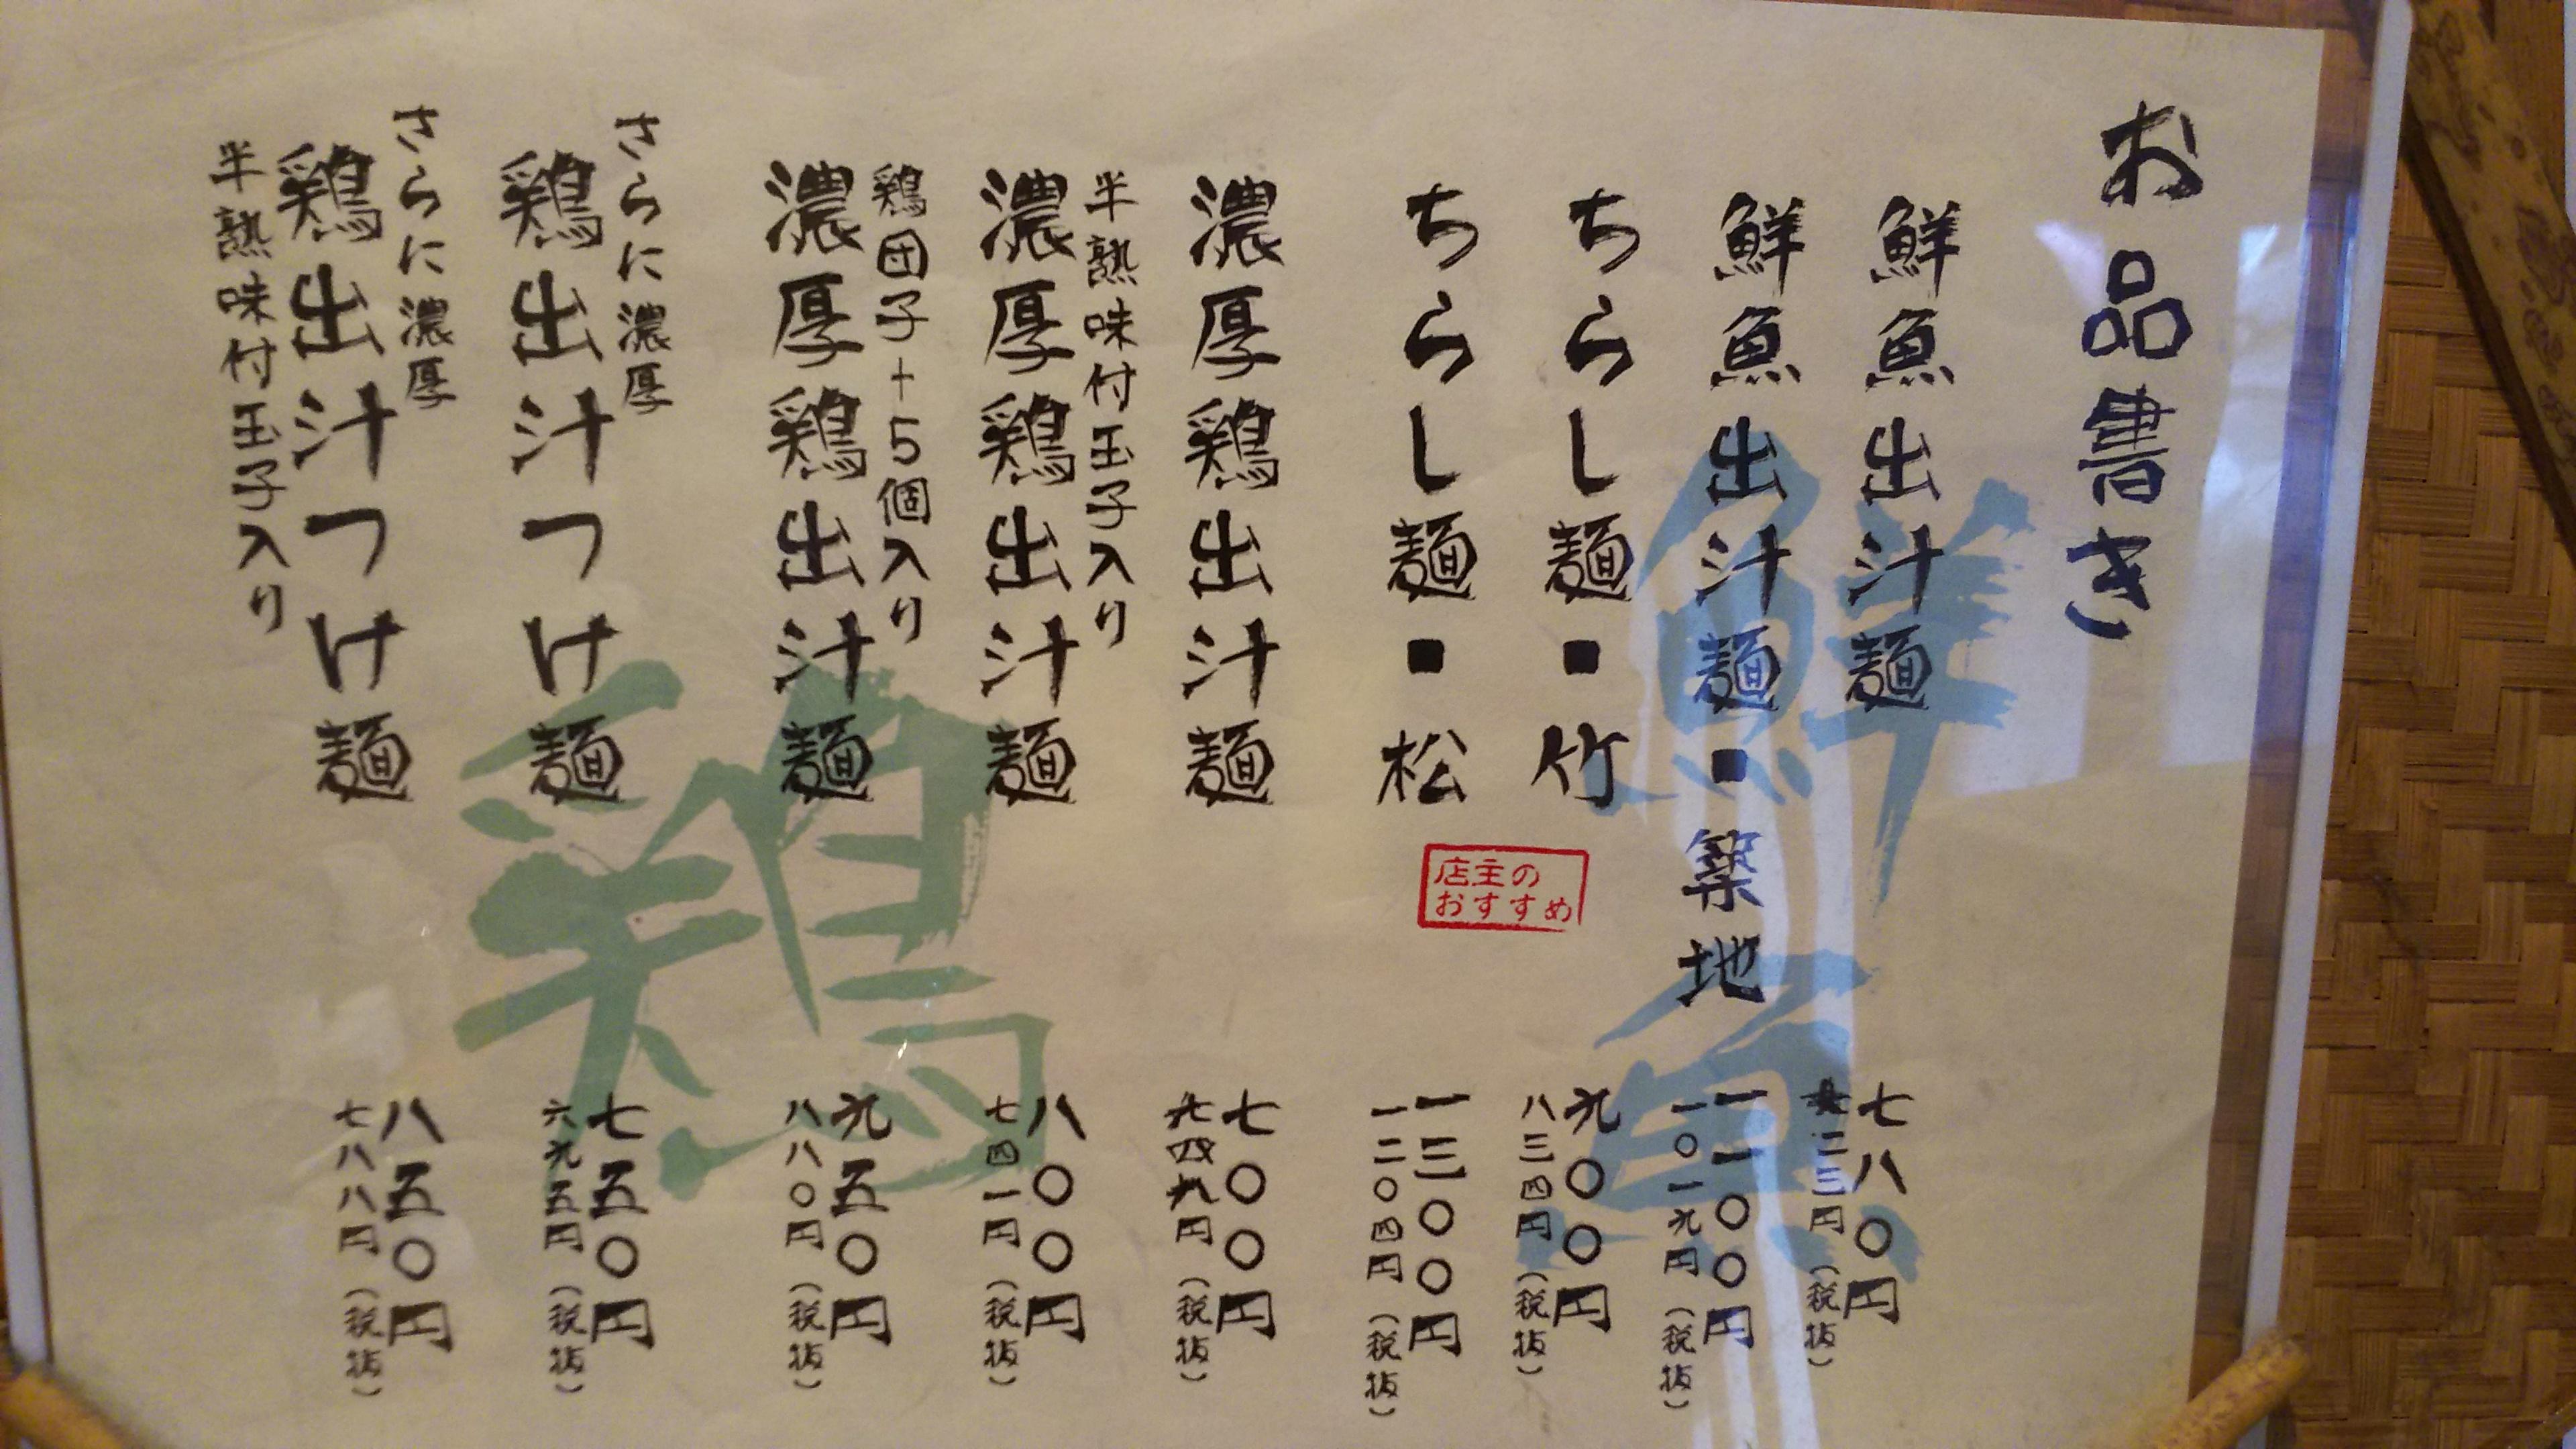 お品書き
鮮魚出汁麺
七八〇円
二三円（税抜）
鮮魚出汁麺・築地
一一〇〇円
一〇一九円（税抜）
ちらし麺・竹
九〇〇円
八三四円（税抜）
ちらし麺・松
一三〇〇円
一二〇四円（税抜）
店主の
おすすめ
濃厚鶏出汁麺
七〇〇円
円（税抜）
半熟味付玉子入り
濃厚鶏出汁麺
八〇〇円
七四一円（税抜）
鶏団子+5個入り
濃厚鶏出汁麺
九五〇円
八八〇円（税抜）
さらに濃厚
鶏出汁つけ麺
七五〇円
六九五円（税抜）
さらに濃厚
鶏出汁つけ麺
半熟味付玉子入り
八五〇円
七八八円（税抜）
鮮魚
鶏